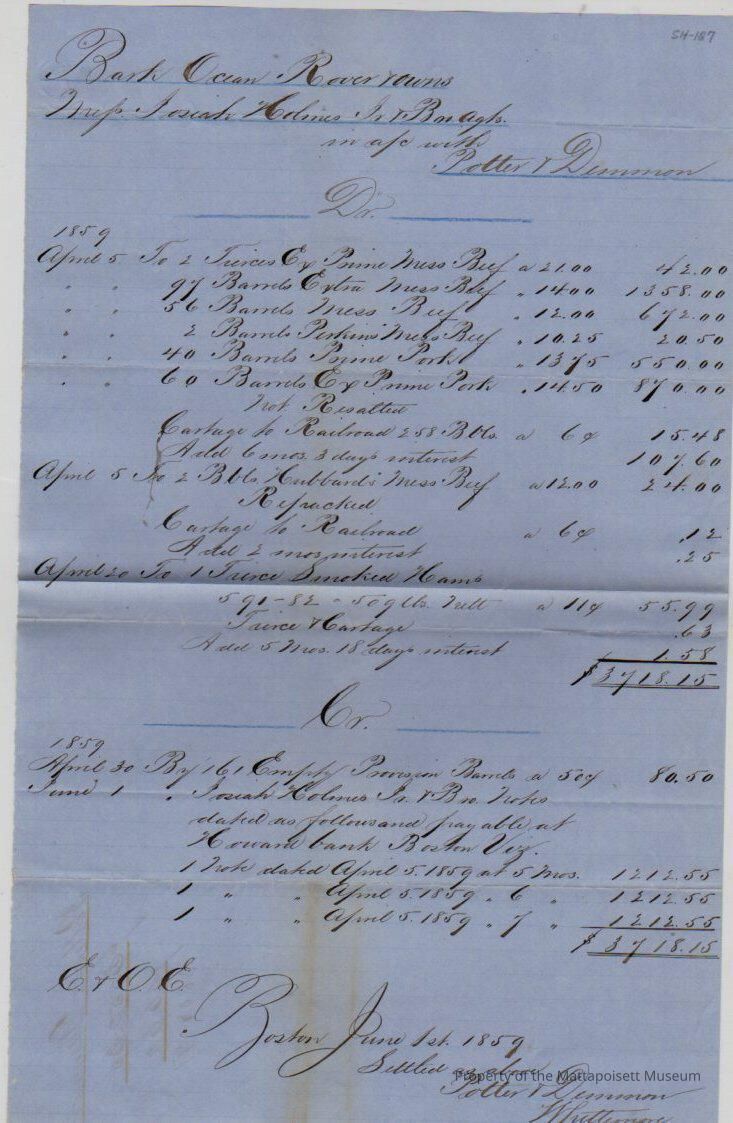 SH-187
Bark Ocean Rover & Owns
Mess. Josiah Holmes Jr & Bro Agts.
in a/c with
Potter & Demmon
Dr.
1859
April 5 To 2 Tierces Ex Prime Mess Beef a 21.00 42.00
" " 97 Barrels Extra Mess Beef " 14.00 1358.00
" " 56 Barrels Mess Beef " 12.00 672.00
" " 2 Barrels Perkins' Mess Beef " 10.25 20.50
" " 40 Barrels Prime Pork " 13.75 550.00
" " 60 Barrels Ex Prime Pork " 14.50 870.00
Not Resalted
Cartage to Railroad 258 Bbls. a 6¢ 15.48
Add 6 mos. 3 days interest 107.60
April 5 To 2 Bbls Hubbard's Mess Beef a 12.00 24.00
Repacked
Cartage to Railroad a 6¢ .12
Add 2 mos interest .25
April 20 To 1 Tierce Smoked Hams
591-82 - 509 lbs. Nett a 11¢ 55.99
Tierce & Cartage .63
Add 5 Mos. 18 days interest 1.58
$3718.15
Cr.
1859
April 30 By 161 Empty Provision Barrels a 50¢ 80.50
June 1 " Josiah Holmes Jr. & Bro. Notes
dated as follows and payable at
Howard bank Boston Viz.
1 Note dated April 5. 1859 at 5 Mos. 1212.55
1 " " April 5. 1859 " 6 " 1212.55
1 " " April 5. 1859 " 7 " 1212.55
$3718.15
E & O. E.
Boston June 1st. 1859
Settled as above
Potter & Demmon
Whittemore
Property of the Mattapoisett Museum